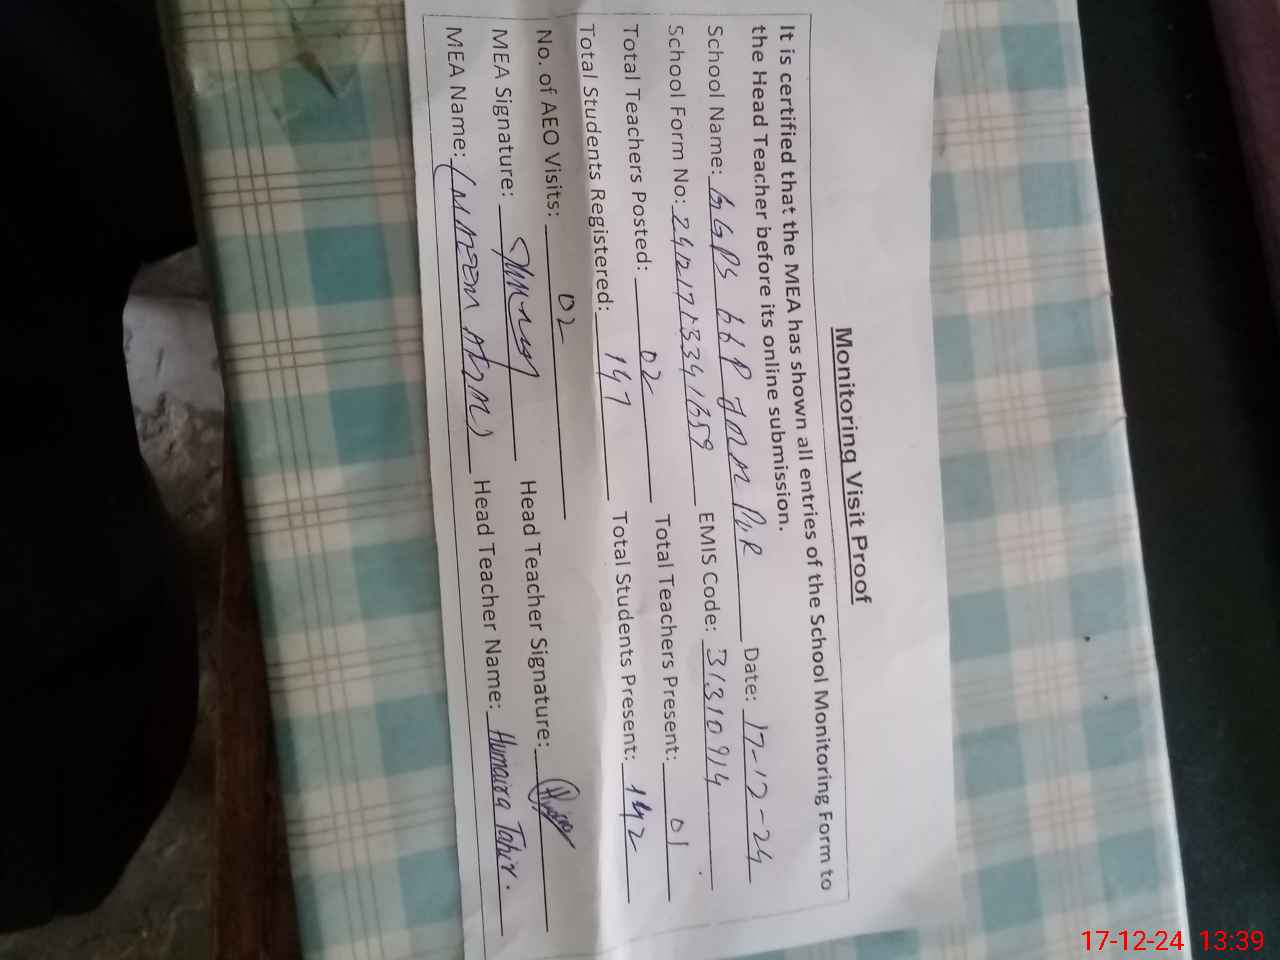 Monitoring Visit Proof
It is certified that the MEA has shown all entries of the School Monitoring Form to
the Head Teacher before its online submission.
School Name: GGPS Date: 17-12-24
School Form No: EMIS Code: 31310914
Total Teachers Posted: 02 Total Teachers Present: 01
Total Students Registered: 147 Total Students Present: 142
No. of AEO Visits: 02
MEA Signature: Head Teacher Signature:
MEA Name: Head Teacher Name: Humaira Tahir.
17-12-24 13:39